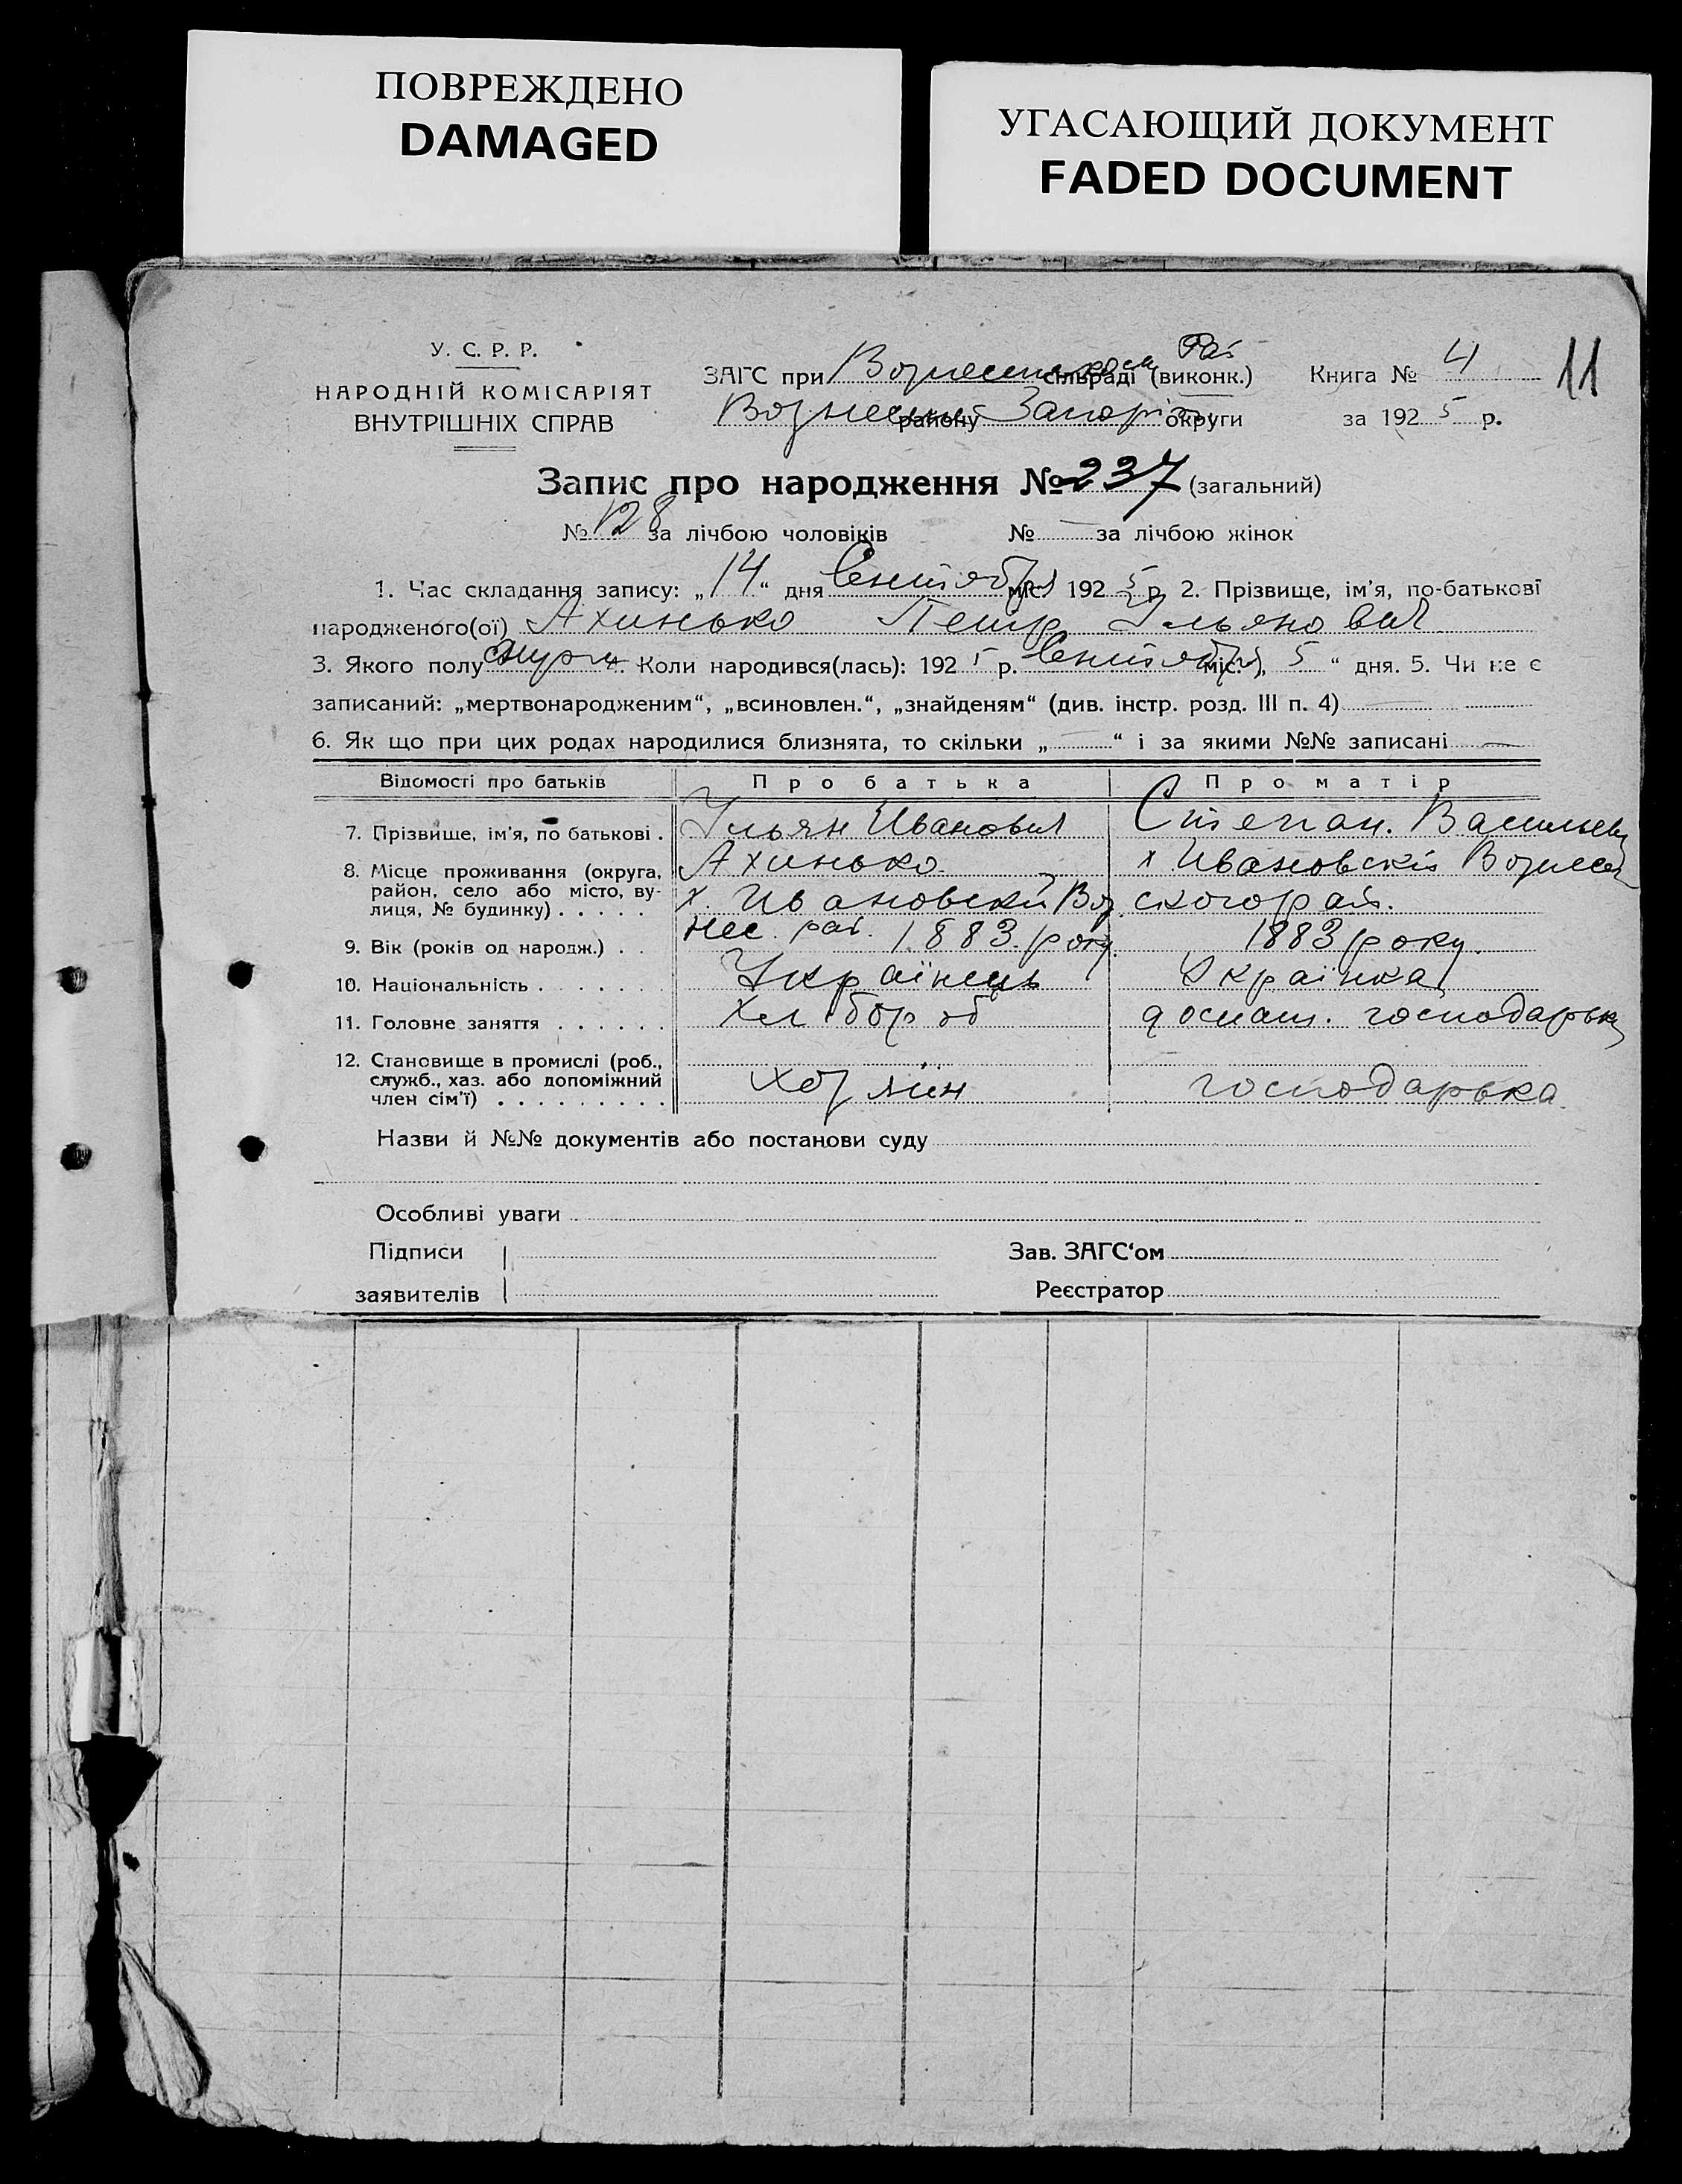 ПОВРЕЖДЕНО
DAMAGED
УГАСАЮЩИЙ ДОКУМЕНТ
FADED DOCUMENT
У. С. Р. Р.
НАРОДНІЙ КОМІСАРІЯТ
ВНУТРІШНІХ СПРАВ
ЗАГС при сільраді (виконк.) Рай
району Запоріз округи
Книга № 4
за 1925 р.
11
Запис про народження № 237 (загальний)
№ 128 за лічбою чоловіків № за лічбою жінок
1. Час складання запису: „14“ дня Сентября міс. 1925 р. 2. Прізвище, ім'я, по-батькові
народженого(ої) Ахинько Петр Ільянович
3. Якого полу 4. Коли народився(лась): 1925 р. Сентября міс. „5“ дня. 5. Чи не є
записаний: „мертвонародженим“, „всиновлен.“, „знайденям“ (див. інстр. розд. III п. 4)
6. Як що при цих родах народилися близнята, то скільки „ “ і за якими №№ записані
Відомості про батьків Про батька Про матір
7. Прізвище, ім'я, по батькові . Ільян Иванович Степан. Васильев
8. Місце проживання (округа, район, село або місто, вулиця, № будинку) . . . . . Ахинько х. Ивановский Воз нес. рай. х Ивановскій Вознесен скогорай.
9. Вік (років од народж.) . . 1883 року 1883 року.
10. Національність . . . . . . . Українець Українка
11. Головне заняття . . . . . . Хлібороб домаш. господарька
12. Становище в промислі (роб., служб., хаз. або допоміжний член сім'ї) . . . . . . . . . Хозяін господарька
Назви й №№ документів або постанови суду
Особливі уваги
Підписи
заявителів
Зав. ЗАГС'ом
Реєстратор